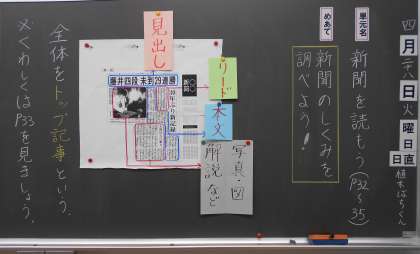 四月二十八日火曜日
日直
単元名
新聞を読もう(P32〜35)
めあて
新聞のしくみを
調べよう!
見出し
リード
本文
写真・図
解説など
藤井四段 未到29連勝
全体をトップ記事という。
※くわしくはP33を見ましょう。